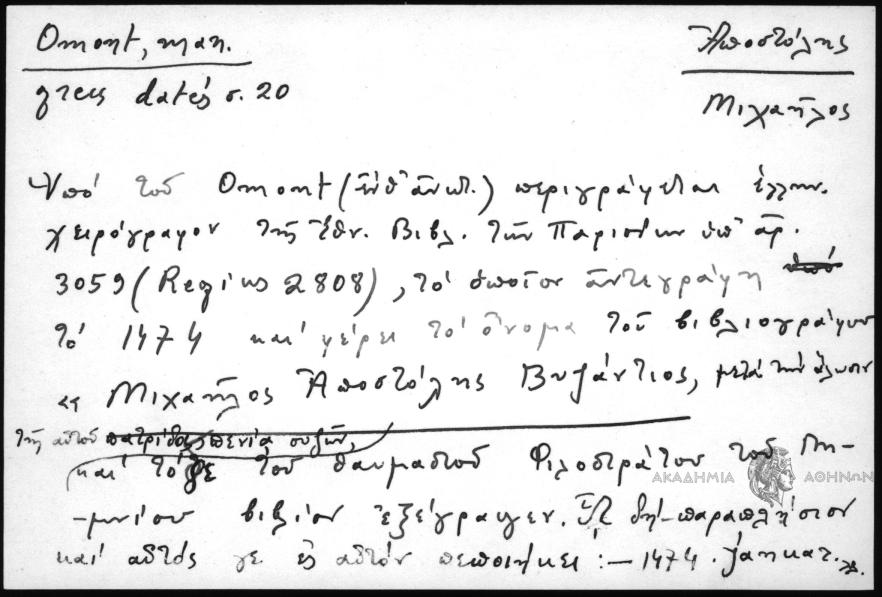 Omont, man.
grecs datés σ. 20
Ἀποστόλης
Μιχαῆλος
Ὑπό τοῦ Omont (ἔνθ' ἄνωτ.) περιγράφεται ἑλλην.
χειρόγραφον τῆς Ἐθν. Βιβλ. τῶν Παρισίων ὑπ' ἀρ.
3059 (Regius 2808), τό ὁποῖον ἀντεγράφη ὑπό
τό 1474 καί φέρει τό ὄνομα τοῦ βιβλιογράφου
«Μιχαῆλος Ἀποστόλης Βυζάντιος, μετά τήν ἅλωσιν
τῆς αὐτοῦ πατρίδος πενία συζῶν,
καί τόδε τοῦ θαυμαστοῦ Φιλοστράτου τοῦ Λη-
-μνίου βιβλίον ἐξέγραψεν. Ὅ δή παραπλήσιον
καί αὐτός γε ἐς αὐτόν πεποίηκει :— 1474.
ΑΚΑΔΗΜΙΑ ΑΘΗΝΩΝ